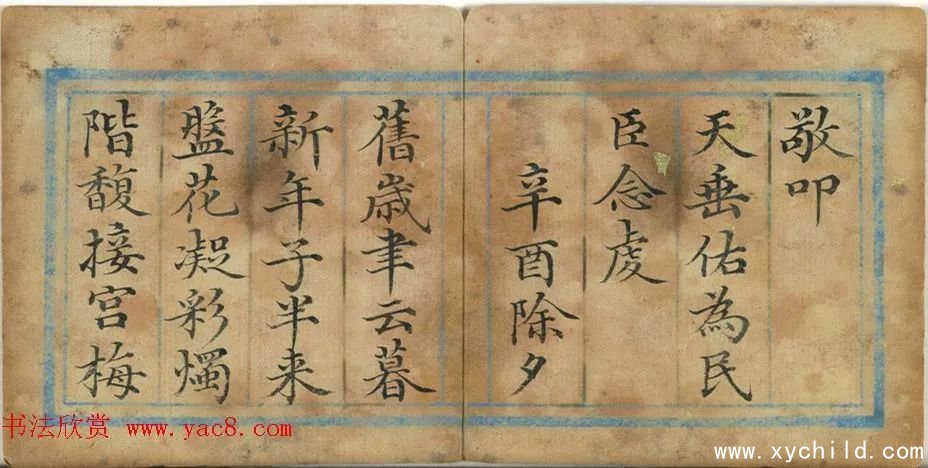 敬叩
天垂佑為民
臣念虔
辛酉除夕
舊歲聿云暮
新年子半来
盤花凝彩燭
階馥接宮梅
书法欣赏 www.yac8.com
www.xychild.com